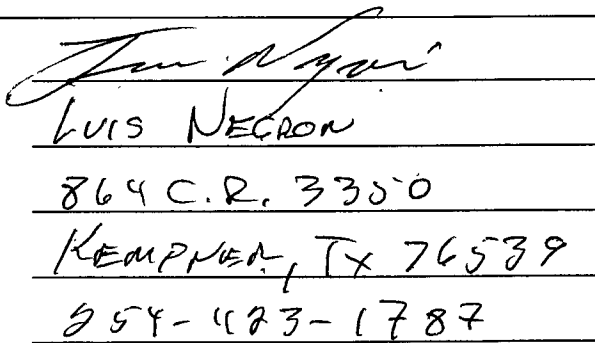 LUIS NEGRON
864 C.R. 3350
KEMPNER, TX 76539
254-423-1787